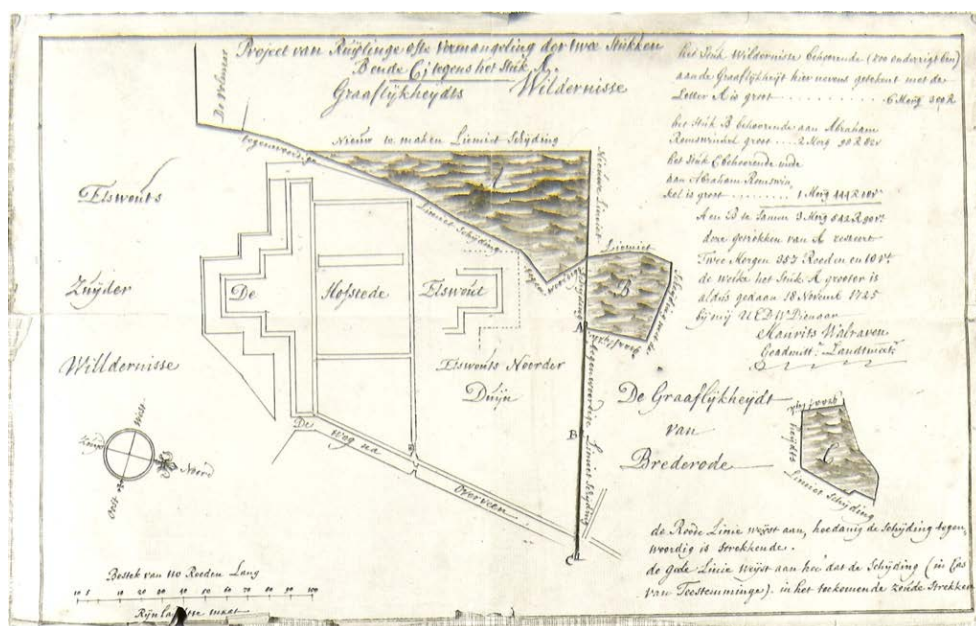 Project van Ruÿlinge ofte vermangeling der twee Stukken
B ende C; tegens het Stuk A.
Graaflÿkheÿdts Wildernisse
het Stuk Wildernisse behoorende
aan de Graaflÿkheÿt hier nevens getekent met de
Letter A is groot . . . . . . . . . . 6 Morg 300 R
het Stuk B behoorende aan Abraham
Romswinkel groot . . . . 2 Morg
het Stuk C behoorende
aan Abraham Romswin
kel is groot . . . . . . . . 1 Morg 444 R
A en B te Samen 3 Morg 542 R
deze getrokken van A resteert
Twee Morgen 357 Roeden en 10 vt
de welke het Stuk A grooter is
aldus gedaan 18 Novemb 1725
bÿ mÿ
Maurits Walraven
Geadmitt.r Landtmeetr.
De Volmeer
tegenwoordige
Nieuw te maken Liemiet Schÿding
Liemiet Schÿding
Nieuwe Liemiet
Liemiet
Elswouts
Zuÿder
Willdernisse
De Hofstede Elswout
Elswouts Noorder
Duÿn
B
A
B
C
tegenwoordige Limiet Schÿding
De Graaflÿkheÿdt
van
Brederode
C
Limiet Schÿding
De Weg na Overveen
West
Zuÿd
Noord
Oost
de Rode Linie wÿst aan, hoedanig de Schÿding tegen,
woordig is strekkende.
de gele Linie wÿst aan hoe dat de Schÿding (in Cas
van Toestemminge). in het toekomende zoude Strekken
Bostek van 110 Roeden Lang
10 5 10 20 30 40 50 60 70 80 90 100
Rÿnlandtse maat